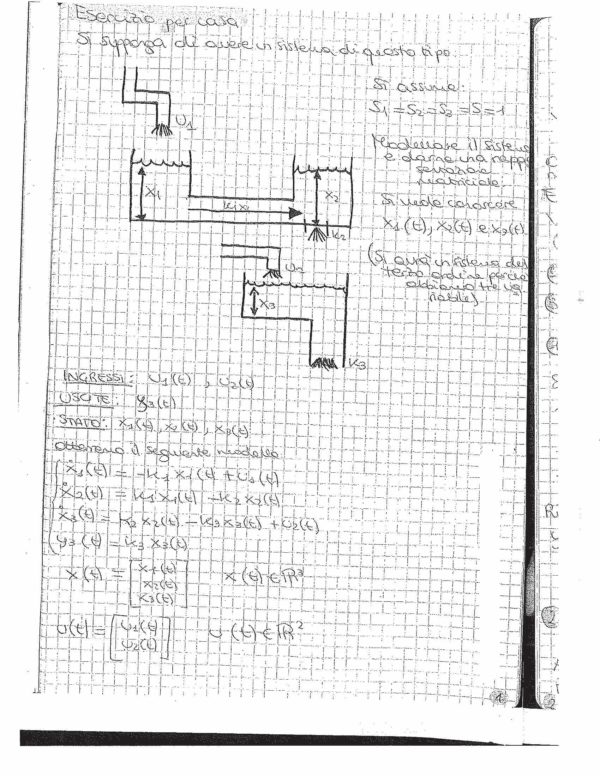 Esercizio per casa
Si supponga di avere un sistema di questo tipo.
Si assume:
S₁=S₂=S₃=S=1
Modellare il sistema
e darne una rappre
sentazione
matriciale.
Si vuole conoscere
x₁(t), x₂(t) e x₃(t)
(Si avrà un sistema del
terzo ordine perché
abbiamo tre va
riabile)
U₁
X₁
K₁X₁
X₂
K₂
U₂
X₃
K₃
INGRESSI: U₁(t), U₂(t)
USCITE: y₃(t)
STATO: x₁(t), x₂(t), x₃(t)
otteremo il seguente modello
ẋ₁(t) = -K₁x₁(t) + U₁(t)
ẋ₂(t) = K₁x₁(t) - K₂x₂(t)
ẋ₃(t) = K₂x₂(t) - K₃x₃(t) + U₂(t)
y₃(t) = K₃x₃(t)
x(t) = [x₁(t) x₂(t) x₃(t)] x(t) ∈ ℝ³
U(t) = [U₁(t) U₂(t)] U(t) ∈ ℝ²
1